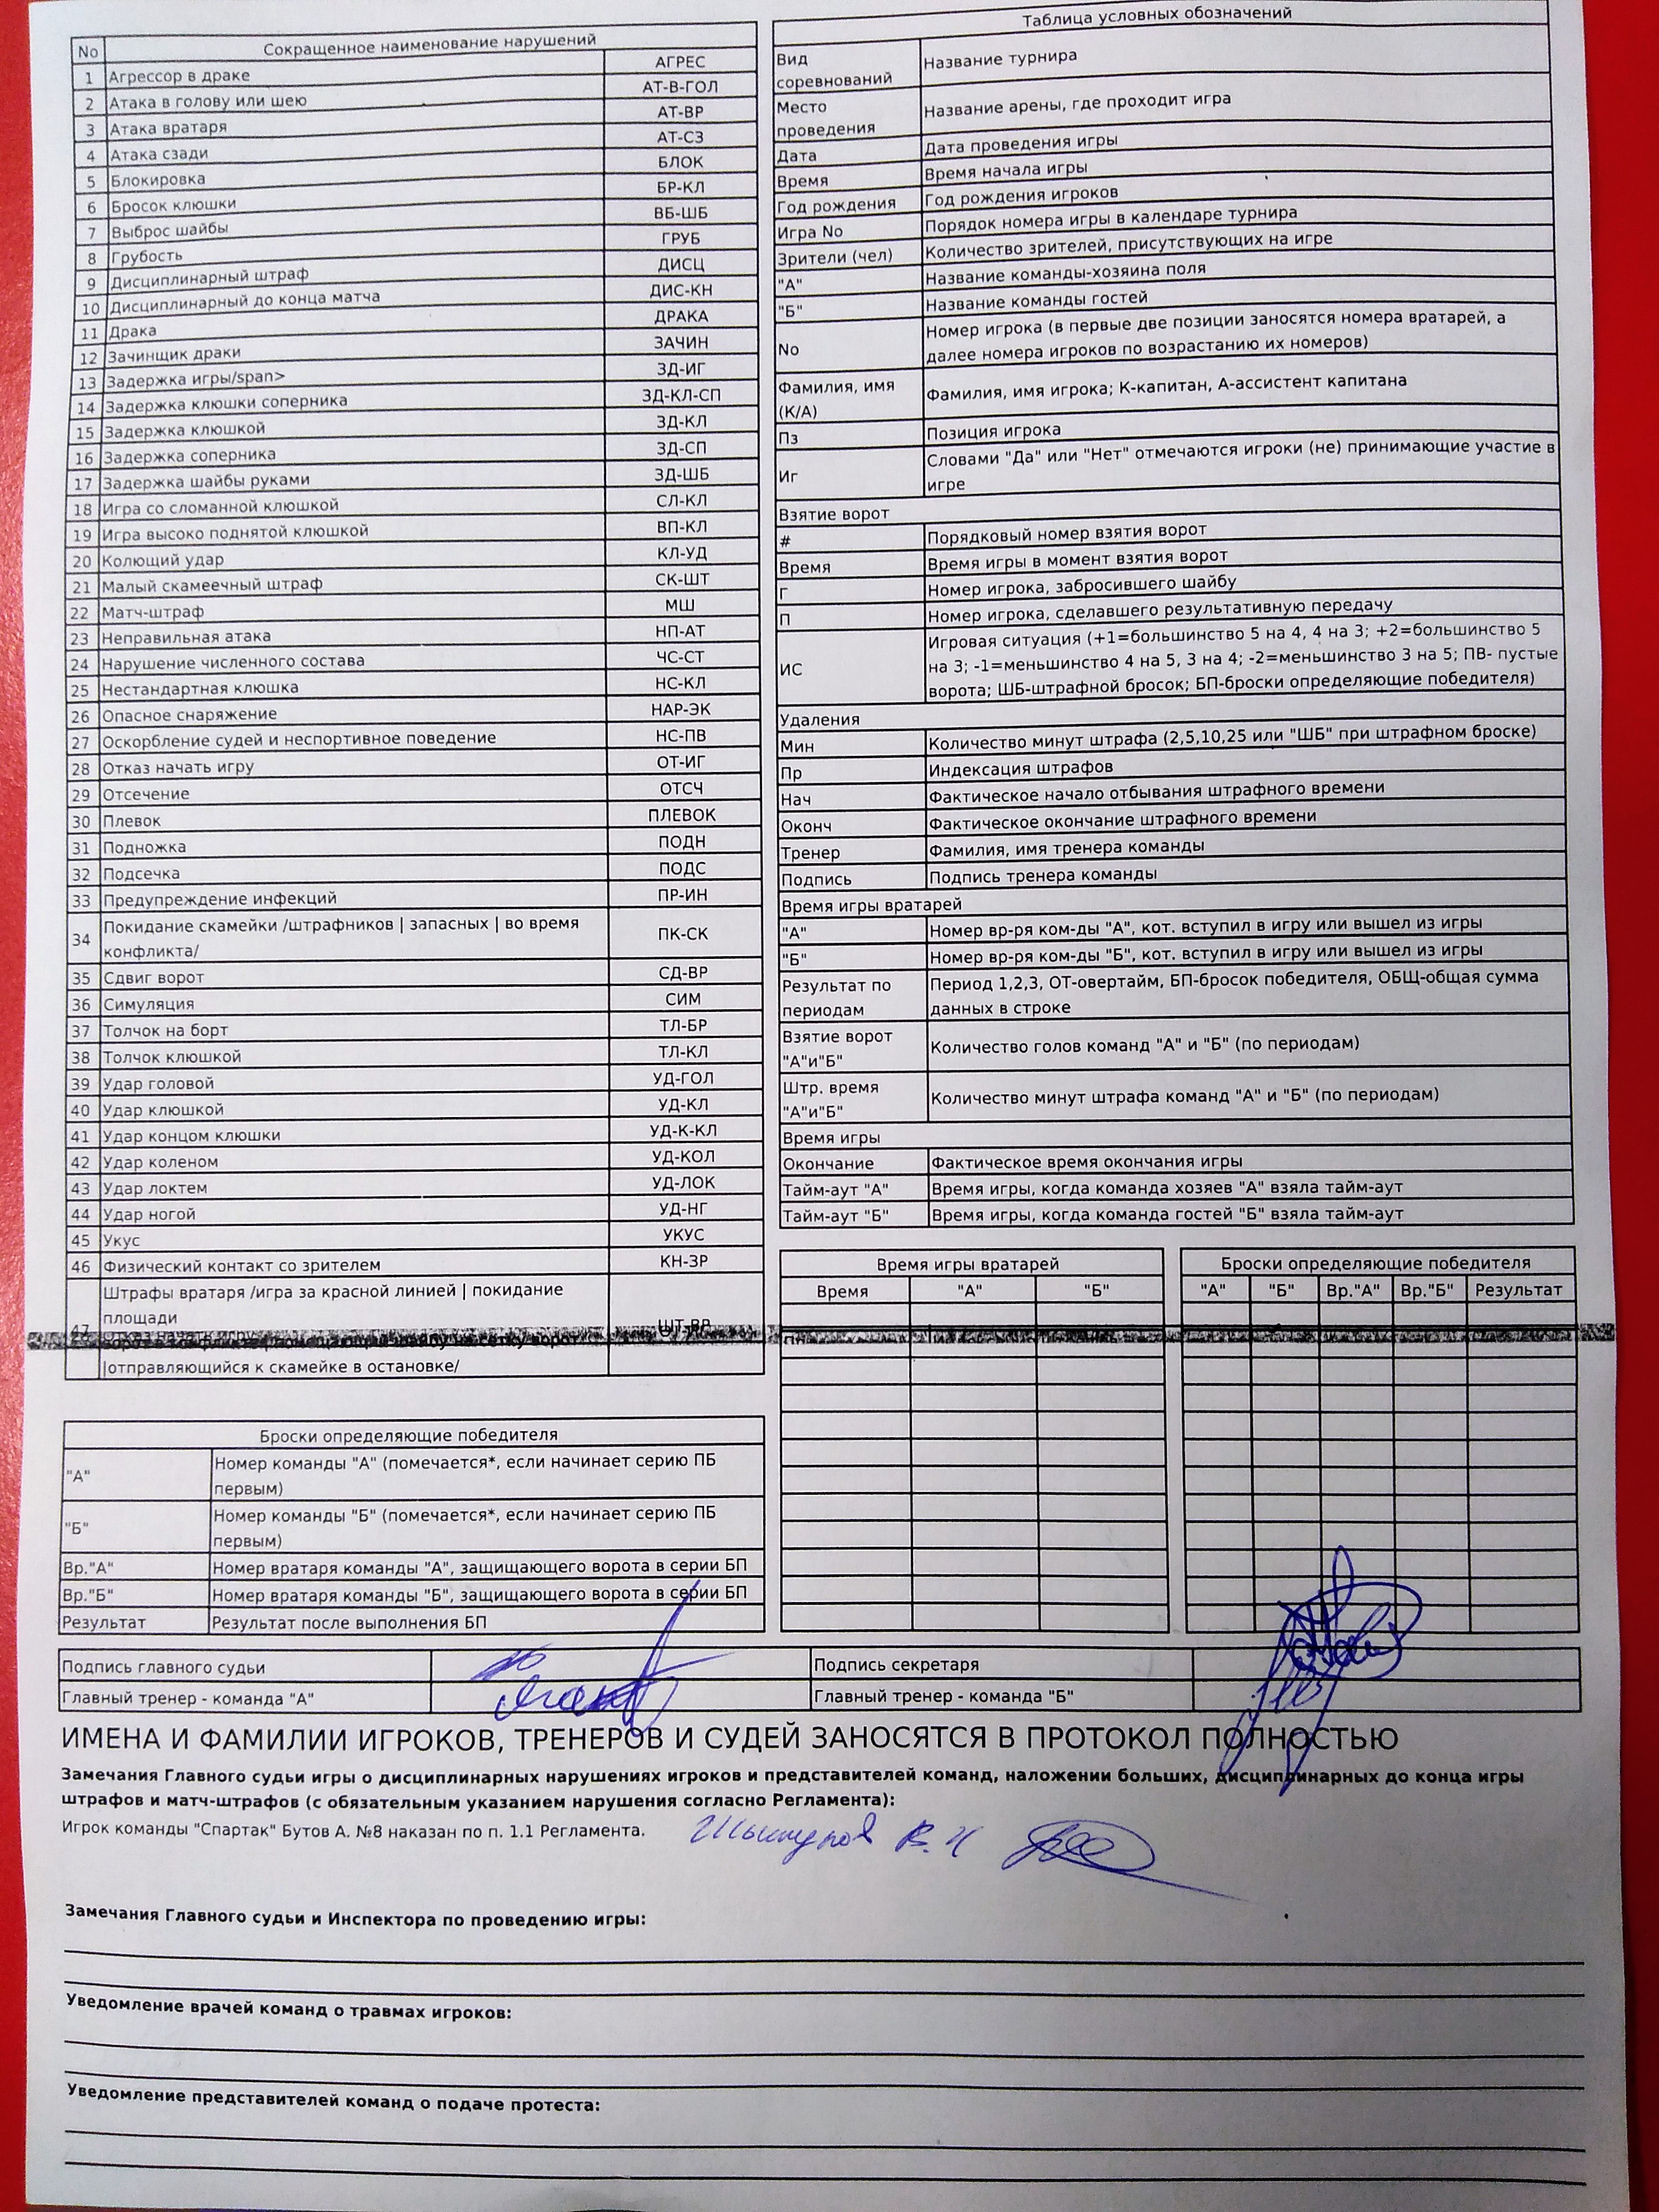 No Сокращенное наименование нарушений
1 Агрессор в драке АГРЕС
2 Атака в голову или шею АТ-В-ГОЛ
3 Атака вратаря АТ-ВР
4 Атака сзади АТ-СЗ
5 Блокировка БЛОК
6 Бросок клюшки БР-КЛ
7 Выброс шайбы ВБ-ШБ
8 Грубость ГРУБ
9 Дисциплинарный штраф ДИСЦ
10 Дисциплинарный до конца матча ДИС-КН
11 Драка ДРАКА
12 Зачинщик драки ЗАЧИН
13 Задержка игры/span> ЗД-ИГ
14 Задержка клюшки соперника ЗД-КЛ-СП
15 Задержка клюшкой ЗД-КЛ
16 Задержка соперника ЗД-СП
17 Задержка шайбы руками ЗД-ШБ
18 Игра со сломанной клюшкой СЛ-КЛ
19 Игра высоко поднятой клюшкой ВП-КЛ
20 Колющий удар КЛ-УД
21 Малый скамеечный штраф СК-ШТ
22 Матч-штраф МШ
23 Неправильная атака НП-АТ
24 Нарушение численного состава ЧС-СТ
25 Нестандартная клюшка НС-КЛ
26 Опасное снаряжение НАР-ЭК
27 Оскорбление судей и неспортивное поведение НС-ПВ
28 Отказ начать игру ОТ-ИГ
29 Отсечение ОТСЧ
30 Плевок ПЛЕВОК
31 Подножка ПОДН
32 Подсечка ПОДС
33 Предупреждение инфекций ПР-ИН
34 Покидание скамейки /штрафников | запасных | во время
конфликта/ ПК-СК
35 Сдвиг ворот СД-ВР
36 Симуляция СИМ
37 Толчок на борт ТЛ-БР
38 Толчок клюшкой ТЛ-КЛ
39 Удар головой УД-ГОЛ
40 Удар клюшкой УД-КЛ
41 Удар концом клюшки УД-К-КЛ
42 Удар коленом УД-КОЛ
43 Удар локтем УД-ЛОК
44 Удар ногой УД-НГ
45 Укус УКУС
46 Физический контакт со зрителем КН-ЗР
47 Штрафы вратаря /игра за красной линией | покидание
площади
ШТ-ВР
|отправляющийся к скамейке в остановке/
Таблица условных обозначений
Вид
соревнований Название турнира
Место
проведения Название арены, где проходит игра
Дата Дата проведения игры
Время Время начала игры
Год рождения Год рождения игроков
Игра No Порядок номера игры в календаре турнира
Зрители (чел) Количество зрителей, присутствующих на игре
"А" Название команды-хозяина поля
"Б" Название команды гостей
No Номер игрока (в первые две позиции заносятся номера вратарей, а
далее номера игроков по возрастанию их номеров)
Фамилия, имя
(К/А) Фамилия, имя игрока; К-капитан, А-ассистент капитана
Пз Позиция игрока
Иг Словами "Да" или "Нет" отмечаются игроки (не) принимающие участие в
игре
Взятие ворот
# Порядковый номер взятия ворот
Время Время игры в момент взятия ворот
Г Номер игрока, забросившего шайбу
П Номер игрока, сделавшего результативную передачу
ИС Игровая ситуация (+1=большинство 5 на 4, 4 на 3; +2=большинство 5
на 3; -1=меньшинство 4 на 5, 3 на 4; -2=меньшинство 3 на 5; ПВ- пустые
ворота; ШБ-штрафной бросок; БП-броски определяющие победителя)
Удаления
Мин Количество минут штрафа (2,5,10,25 или "ШБ" при штрафном броске)
Пр Индексация штрафов
Нач Фактическое начало отбывания штрафного времени
Оконч Фактическое окончание штрафного времени
Тренер Фамилия, имя тренера команды
Подпись Подпись тренера команды
Время игры вратарей
"А" Номер вр-ря ком-ды "А", кот. вступил в игру или вышел из игры
"Б" Номер вр-ря ком-ды "Б", кот. вступил в игру или вышел из игры
Результат по
периодам Период 1,2,3, ОТ-овертайм, БП-бросок победителя, ОБЩ-общая сумма
данных в строке
Взятие ворот
"А"и"Б" Количество голов команд "А" и "Б" (по периодам)
Штр. время
"А"и"Б" Количество минут штрафа команд "А" и "Б" (по периодам)
Время игры
Окончание Фактическое время окончания игры
Тайм-аут "А" Время игры, когда команда хозяев "А" взяла тайм-аут
Тайм-аут "Б" Время игры, когда команда гостей "Б" взяла тайм-аут
Время игры вратарей
Время "А" "Б"
Броски определяющие победителя
"А" "Б" Вр."А" Вр."Б" Результат
Броски определяющие победителя
"А" Номер команды "А" (помечается*, если начинает серию ПБ
первым)
"Б" Номер команды "Б" (помечается*, если начинает серию ПБ
первым)
Вр."А" Номер вратаря команды "А", защищающего ворота в серии БП
Вр."Б" Номер вратаря команды "Б", защищающего ворота в серии БП
Результат Результат после выполнения БП
Подпись главного судьи Подпись секретаря
Главный тренер - команда "А" Главный тренер - команда "Б"
ИМЕНА И ФАМИЛИИ ИГРОКОВ, ТРЕНЕРОВ И СУДЕЙ ЗАНОСЯТСЯ В ПРОТОКОЛ ПОЛНОСТЬЮ
Замечания Главного судьи игры о дисциплинарных нарушениях игроков и представителей команд, наложении больших, дисциплинарных до конца игры
штрафов и матч-штрафов (с обязательным указанием нарушения согласно Регламента):
Игрок команды "Спартак" Бутов А. №8 наказан по п. 1.1 Регламента.
Замечания Главного судьи и Инспектора по проведению игры:
Уведомление врачей команд о травмах игроков:
Уведомление представителей команд о подаче протеста: